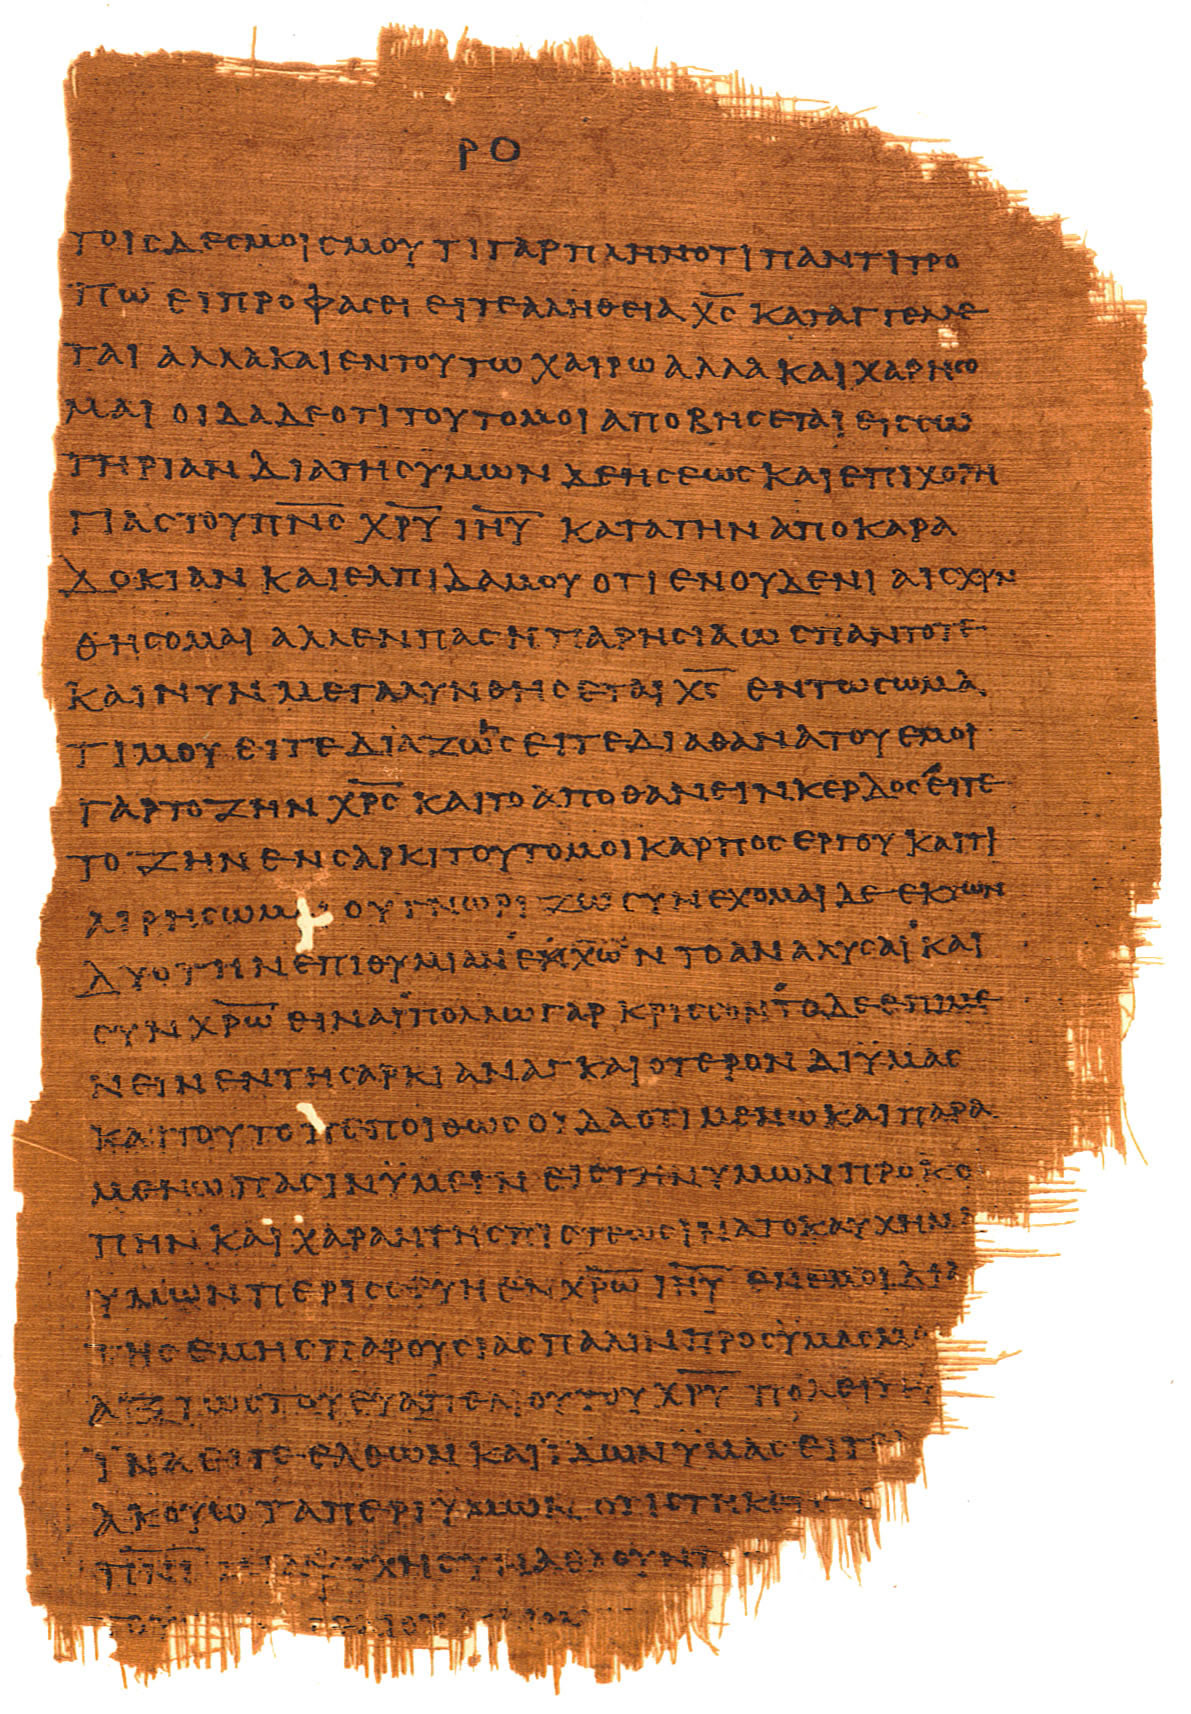 ΡΟ
ΤΟΙСΔΕСΜΟΙСΜΟΥ ΤΙ ΓΑΡ ΠΛΗΝ ΟΤΙ ΠΑΝΤΙ ΤΡΟ
ΠΩ ΕΙ ΠΡΟΦΑСΕΙ ΕΙΤΕ ΑΛΗΘΕΙΑ Χ̅С̅ ΚΑΤΑΓΓΕΛΛΕ
ΤΑΙ ΑΛΛΑ ΚΑΙ ΕΝ ΤΟΥΤΩ ΧΑΙΡΩ ΑΛΛΑ ΚΑΙ ΧΑΡΗСΟ
ΜΑΙ ΟΙΔΑ ΔΕ ΟΤΙ ΤΟΥΤΟ ΜΟΙ ΑΠΟΒΗСΕΤΑΙ ΕΙС СΩ
ΤΗΡΙΑΝ ΔΙΑ ΤΗС ΥΜΩΝ ΔΕΗСΕΩС ΚΑΙ ΕΠΙΧΟΡΗ
ΓΙΑС ΤΟΥ Π̅Ν̅С̅ Χ̅Ρ̅Υ̅ Ι̅Η̅Υ̅ ΚΑΤΑ ΤΗΝ ΑΠΟΚΑΡΑ
ΔΟΚΙΑΝ ΚΑΙ ΕΛΠΙΔΑ ΜΟΥ ΟΤΙ ΕΝ ΟΥΔΕΝΙ ΑΙСΧΥΝ
ΘΗСΟΜΑΙ ΑΛΛ ΕΝ ΠΑСΗ ΠΑΡΗСΙΑ ΩС ΠΑΝΤΟΤΕ
ΚΑΙ ΝΥΝ ΜΕΓΑΛΥΝΘΗСΕΤΑΙ Χ̅С̅ ΕΝ ΤΩ СΩΜΑ
ΤΙ ΜΟΥ ΕΙΤΕ ΔΙΑ ΖΩΗС ΕΙΤΕ ΔΙΑ ΘΑΝΑΤΟΥ ΕΜΟΙ
ΓΑΡ ΤΟ ΖΗΝ Χ̅Ρ̅С̅ ΚΑΙ ΤΟ ΑΠΟΘΑΝΕΙΝ ΚΕΡΔΟС ΕΙΤΕ
ΤΟ ΖΗΝ ΕΝ СΑΡΚΙ ΤΟΥΤΟ ΜΟΙ ΚΑΡΠΟС ΕΡΓΟΥ ΚΑΙ ΤΙ
ΑΙΡΗСΩΜΑΙ ΟΥ ΓΝΩΡΙΖΩ СΥΝΕΧΟΜΑΙ ΔΕ ΕΚ ΤΩΝ
ΔΥΟ ΤΗΝ ΕΠΙΘΥΜΙΑΝ ΕΧΩΝ ΤΟ ΑΝΑΛΥСΑΙ ΚΑΙ
СΥΝ Χ̅Ρ̅Ω̅ ΕΙΝΑΙ ΠΟΛΛΩ ΓΑΡ ΚΡΙССΟΝ ΤΟ ΔΕ ΕΠΙΜΕ
ΝΕΙΝ ΕΝ ΤΗ СΑΡΚΙ ΑΝΑΓΚΑΙΟΤΕΡΟΝ ΔΙ ΫΜΑС
ΚΑΙ ΤΟΥΤΟ ΠΕΠΟΙΘΩС ΟΙΔΑ ΟΤΙ ΜΕΝΩ ΚΑΙ ΠΑΡΑ
ΜΕΝΩ ΠΑСΙΝ ΫΜΕΙΝ ΕΙС ΤΗΝ ΥΜΩΝ ΠΡΟΚΟ
ΠΗΝ ΚΑΙ ΧΑΡΑΝ ΤΗС ΠΙСΤΕΩС ΙΝΑ ΤΟ ΚΑΥΧΗΜΑ
ΥΜΩΝ ΠΕΡΙССΕΥΗ ΕΝ Χ̅Ρ̅Ω̅ Ι̅Η̅Υ̅ ΕΝ ΕΜΟΙ ΔΙΑ
ΤΗС ΕΜΗС ΠΑΡΟΥСΙΑС ΠΑΛΙΝ ΠΡΟС ΫΜΑС ΜΟ
ΑΞΙΩС ΤΟΥ ΕΥΑΓΓΕΛΙΟΥ ΤΟΥ Χ̅Ρ̅Υ̅ ΠΟΛΕΙΤΕΥ
ΙΝΑ ΕΙΤΕ ΕΛΘΩΝ ΚΑΙ ΙΔΩΝ ΫΜΑС ΕΙΤΕ Α
ΑΚΟΥΩ ΤΑ ΠΕΡΙ ΥΜΩΝ ΟΤΙ СΤΗΚΕΤΕ
Π̅Ν̅Ι̅ ΜΙΑ ΨΥΧΗ СΥΝΑΘΛΟΥΝΤ
ΤΟΥ ΕΛΙΟΥ